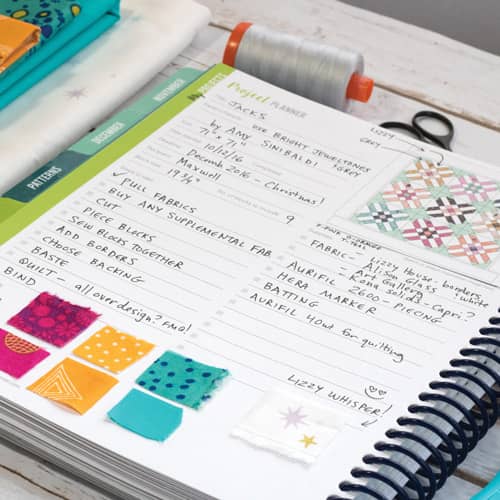 NOVEMBER
DECEMBER
PATTERNS
PROJECTS
Project PLANNER
JACKS
by AMY SINIBALDI
USE BRIGHT JEWELTONES + GREY
71" x 71"
10/12/16
December 2016 - Christmas!
Maxwell
19 3/4"
9
✓ PULL FABRICS
BUY ANY SUPPLEMENTAL FAB
CUT
PIECE BLOCKS
SEW BLOCKS TOGETHER
ADD BORDERS
CHOOSE BACKING
BASTE
QUILT - all over design? FMQ!
BIND
LIZZY
GREY
FABRIC - LIZZY House - borders
- Alison Glass & white
- Art Gallery
- Kona solids - Capri?
AURIFIL 2600 - PIECING
HERA MARKER
BATTING
AURIFIL 40wt for quilting
LIZZY WHISPER!